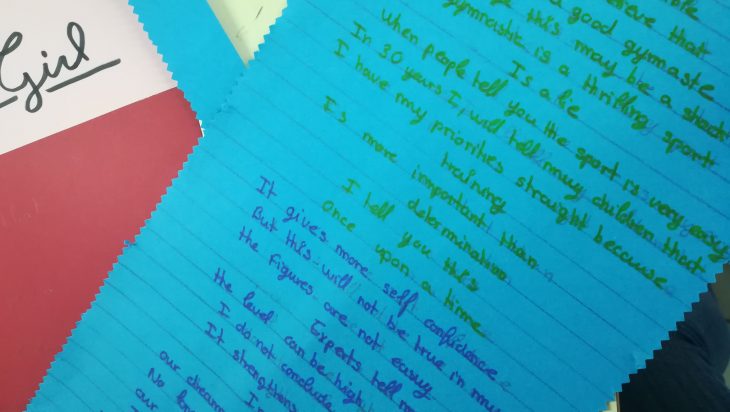 Girl
a good gymnaste
this may be a shock
gymnastic is a thrilling sport
Is a lie
when people tell you the sport is very easy
In 30 years I, will tell muy children that
I have my priorities straight because
training
Is more important than
determination
I tell you this
Once upon a time
It gives more self confidence
But this will not be true in muy
the figures are not easuy
Experts tell
the level can be high
I do not conclude
It strengthens
our
No
our